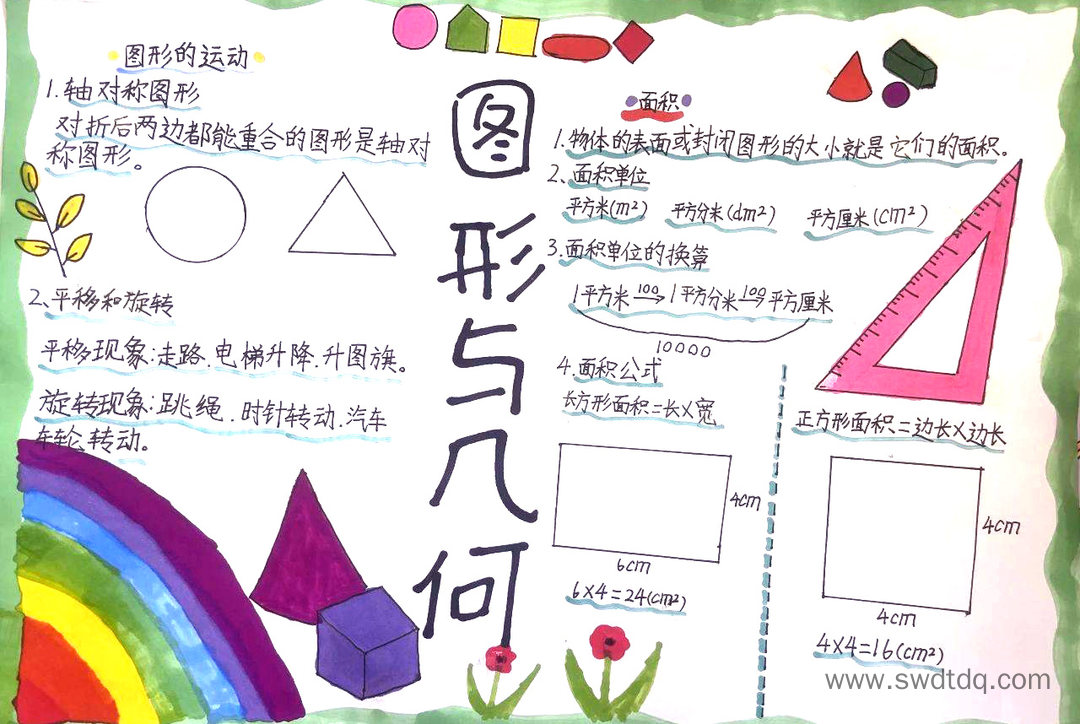 图形与几何
图形的运动
1.轴对称图形
对折后两边都能重合的图形是轴对
称图形。
2、平移和旋转
平移现象:走路.电梯升降.升国旗。
旋转现象:跳绳.时针转动.汽车
车轮转动。
面积
1.物体的表面或封闭图形的大小就是它们的面积。
2、面积单位
平方米(m²) 平方分米(dm²) 平方厘米(cm²)
3.面积单位的换算
1平方米 100→ 1平方分米 100→ 平方厘米
10000
4.面积公式
长方形面积=长×宽
4cm
6cm
6×4=24(cm²)
正方形面积=边长×边长
4cm
4cm
4×4=16(cm²)
www.swdtdq.com